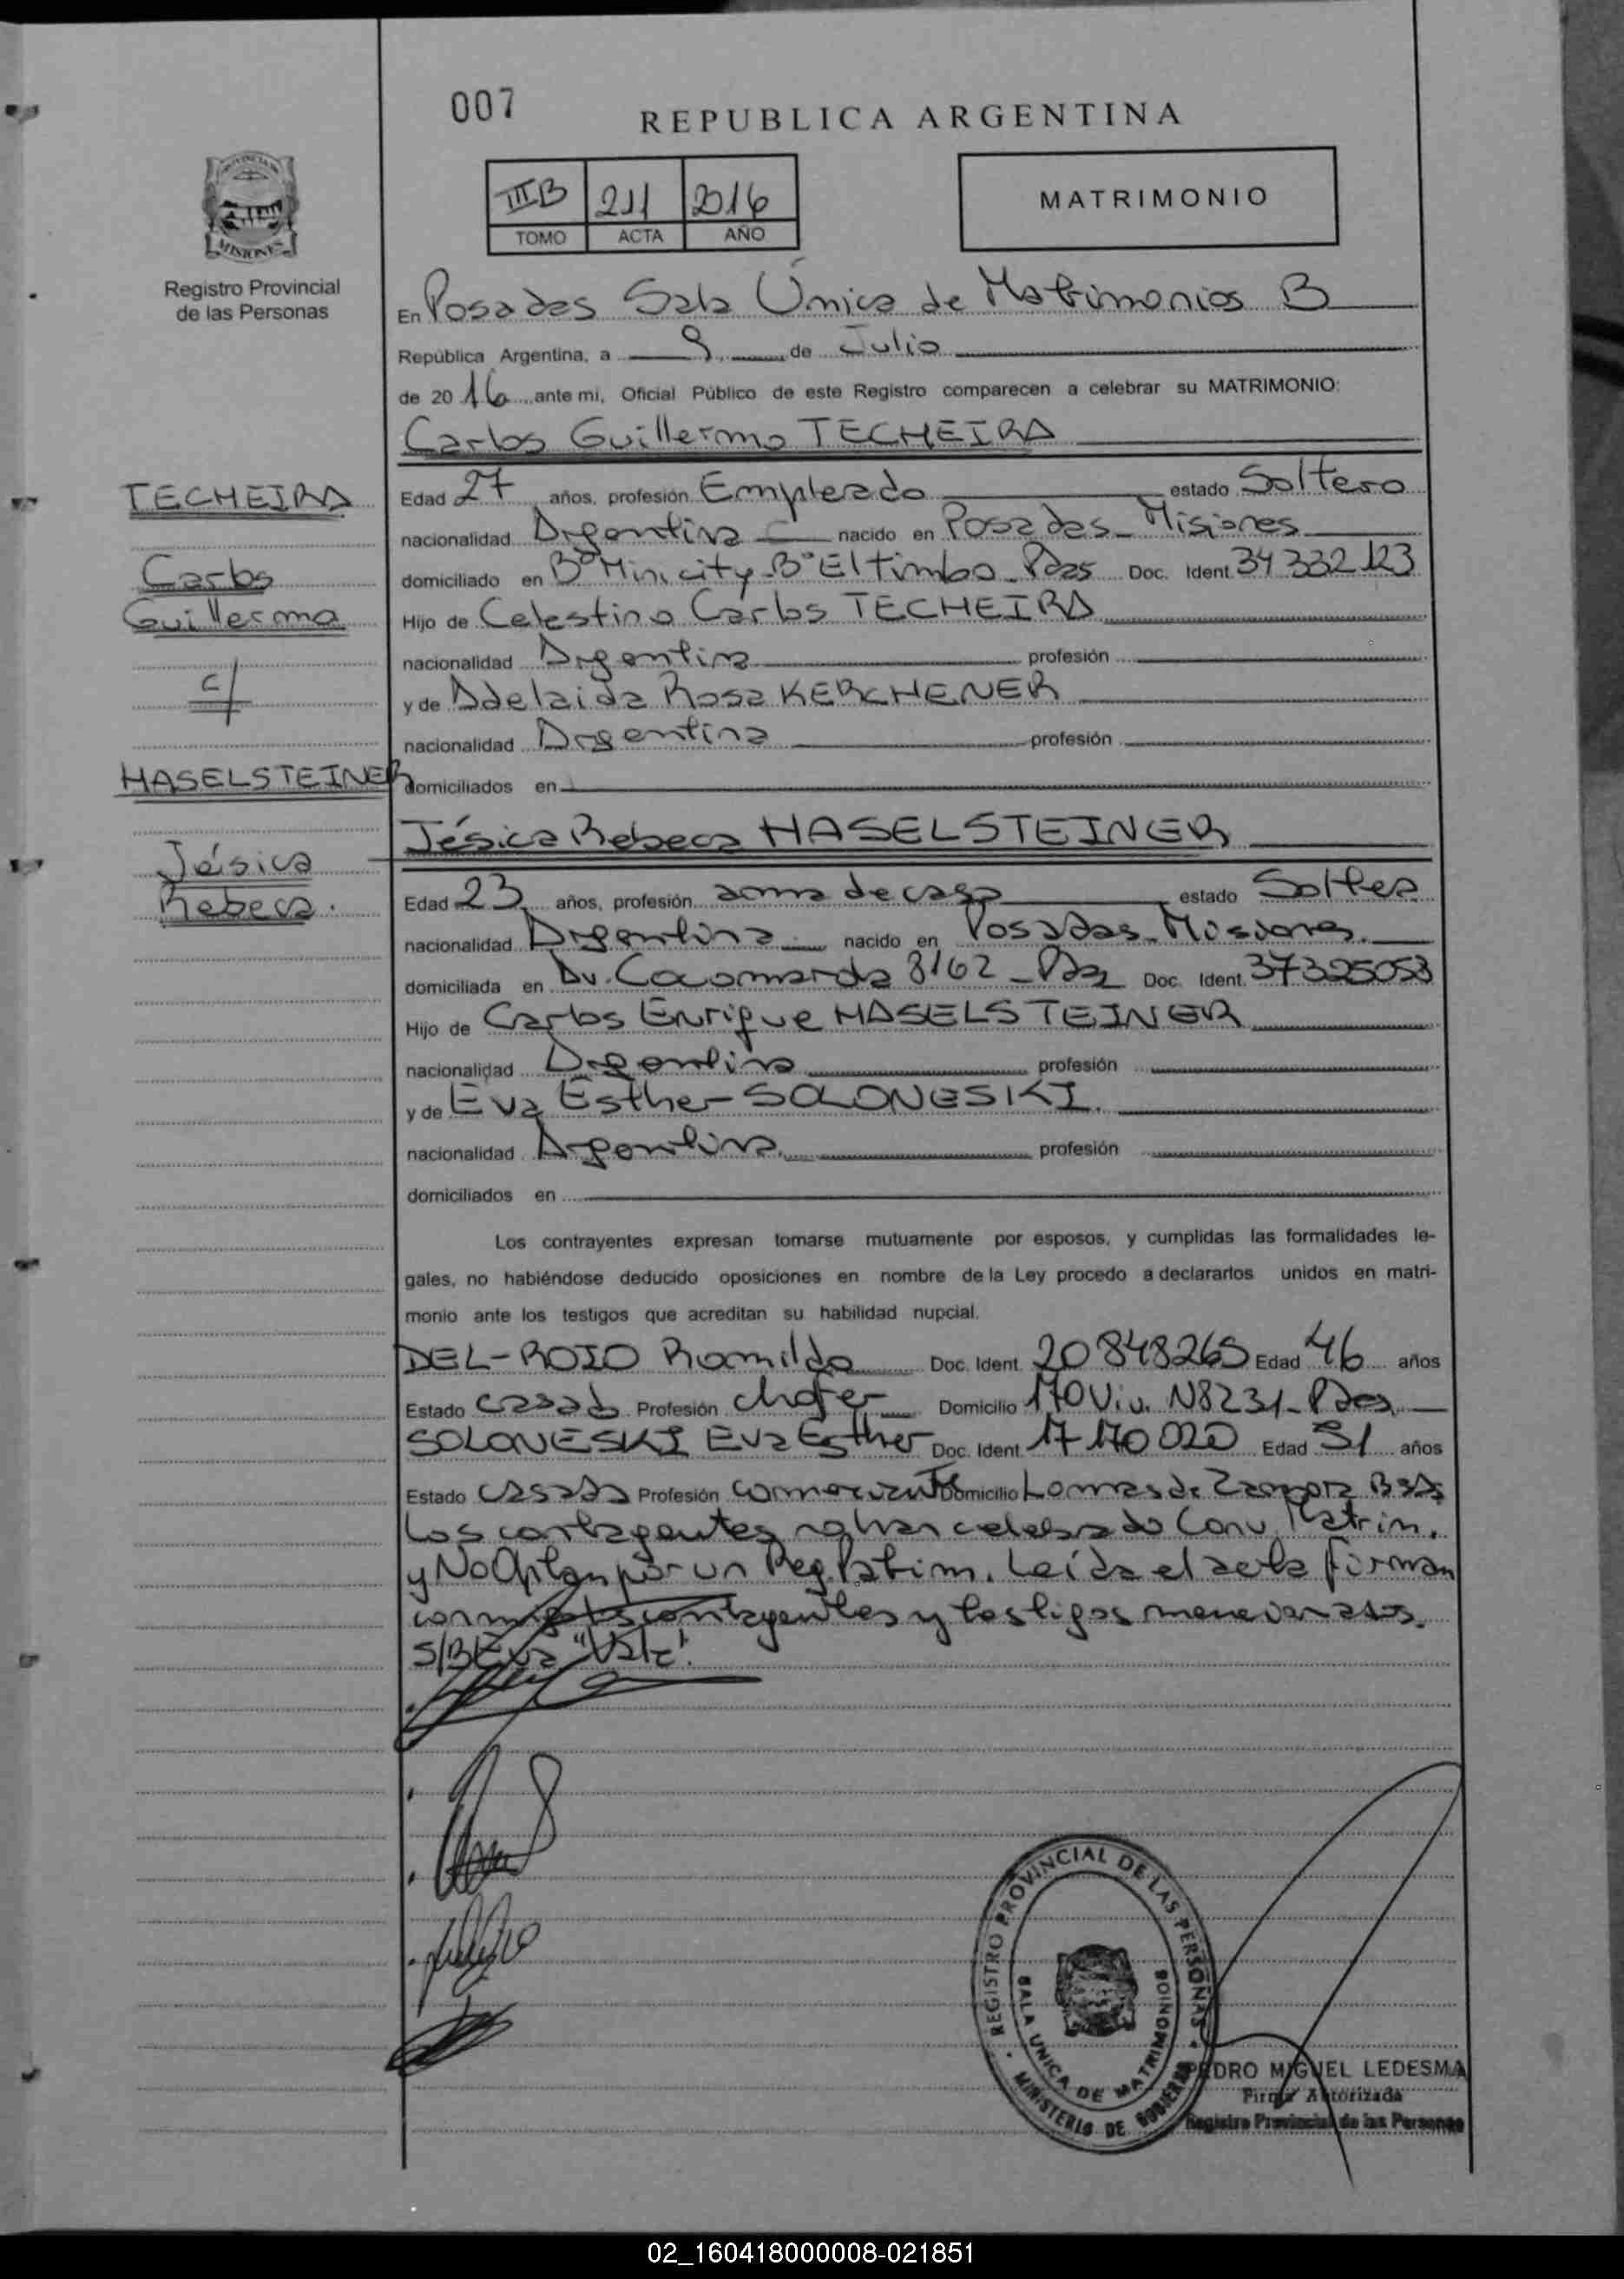 007
REPUBLICA ARGENTINA
IIIB 211 2016
TOMO ACTA AÑO
MATRIMONIO
PROVINCIA DE
MISIONES
Registro Provincial
de las Personas
En Posadas Sala Única de Matrimonios B
República Argentina, a 9 de Julio
de 2016 ante mi, Oficial Público de este Registro comparecen a celebrar su MATRIMONIO:
Carlos Guillermo TECHEIRA
TECHEIRA
Carlos
Guillermo
c/
HASELSTEINER
Jésica
Rebeca.
Edad 27 años, profesión Empleado estado Soltero
nacionalidad Argentina nacido en Posadas - Misiones
domiciliado en B° Minicity - B° El timbo - Pdas Doc. Ident. 34 332 123
Hijo de Celestino Carlos TECHEIRA
nacionalidad Argentina profesión
y de Adelaida Rosa KERCHENER
nacionalidad Argentina profesión
domiciliados en
Jésica Rebeca HASELSTEINER
Edad 23 años, profesión ama de casa estado Soltera
nacionalidad Argentina nacido en Posadas - Misiones.
domiciliada en Av. Cocomarola 8162 - Pdas Doc. Ident. 37325053
Hijo de Carlos Enrique HASELSTEINER
nacionalidad Argentina profesión
y de Eva Esther SOLONESKI.
nacionalidad Argentina. profesión
domiciliados en
Los contrayentes expresan tomarse mutuamente por esposos, y cumplidas las formalidades le-
gales, no habiéndose deducido oposiciones en nombre de la Ley procedo a declararlos unidos en matri-
monio ante los testigos que acreditan su habilidad nupcial.
DEL-ROIO Romildo Doc. Ident. 20848265 Edad 46 años
Estado casado Profesión chofer Domicilio 170 Viv. N8231 - Pdas.
SOLONESKI Eva Esther Doc. Ident. 17 170 020 Edad 51 años
Estado casada Profesión comerciante Domicilio Lomas de Zamora BsAs
Los contrayentes no han celebrado Conv. Matrim.
y No Optan por un Reg. Patrim. Leída el acta firman
conmigo los contrayentes y testigos mencionados.
S/B Eva "Vale".
REGISTRO PROVINCIAL DE LAS PERSONAS
SALA UNICA DE MATRIMONIOS
MINISTERIO DE GOBIERNO
PEDRO MIGUEL LEDESMA
Firma Autorizada
Registro Provincial de las Personas
02_160418000008-021851